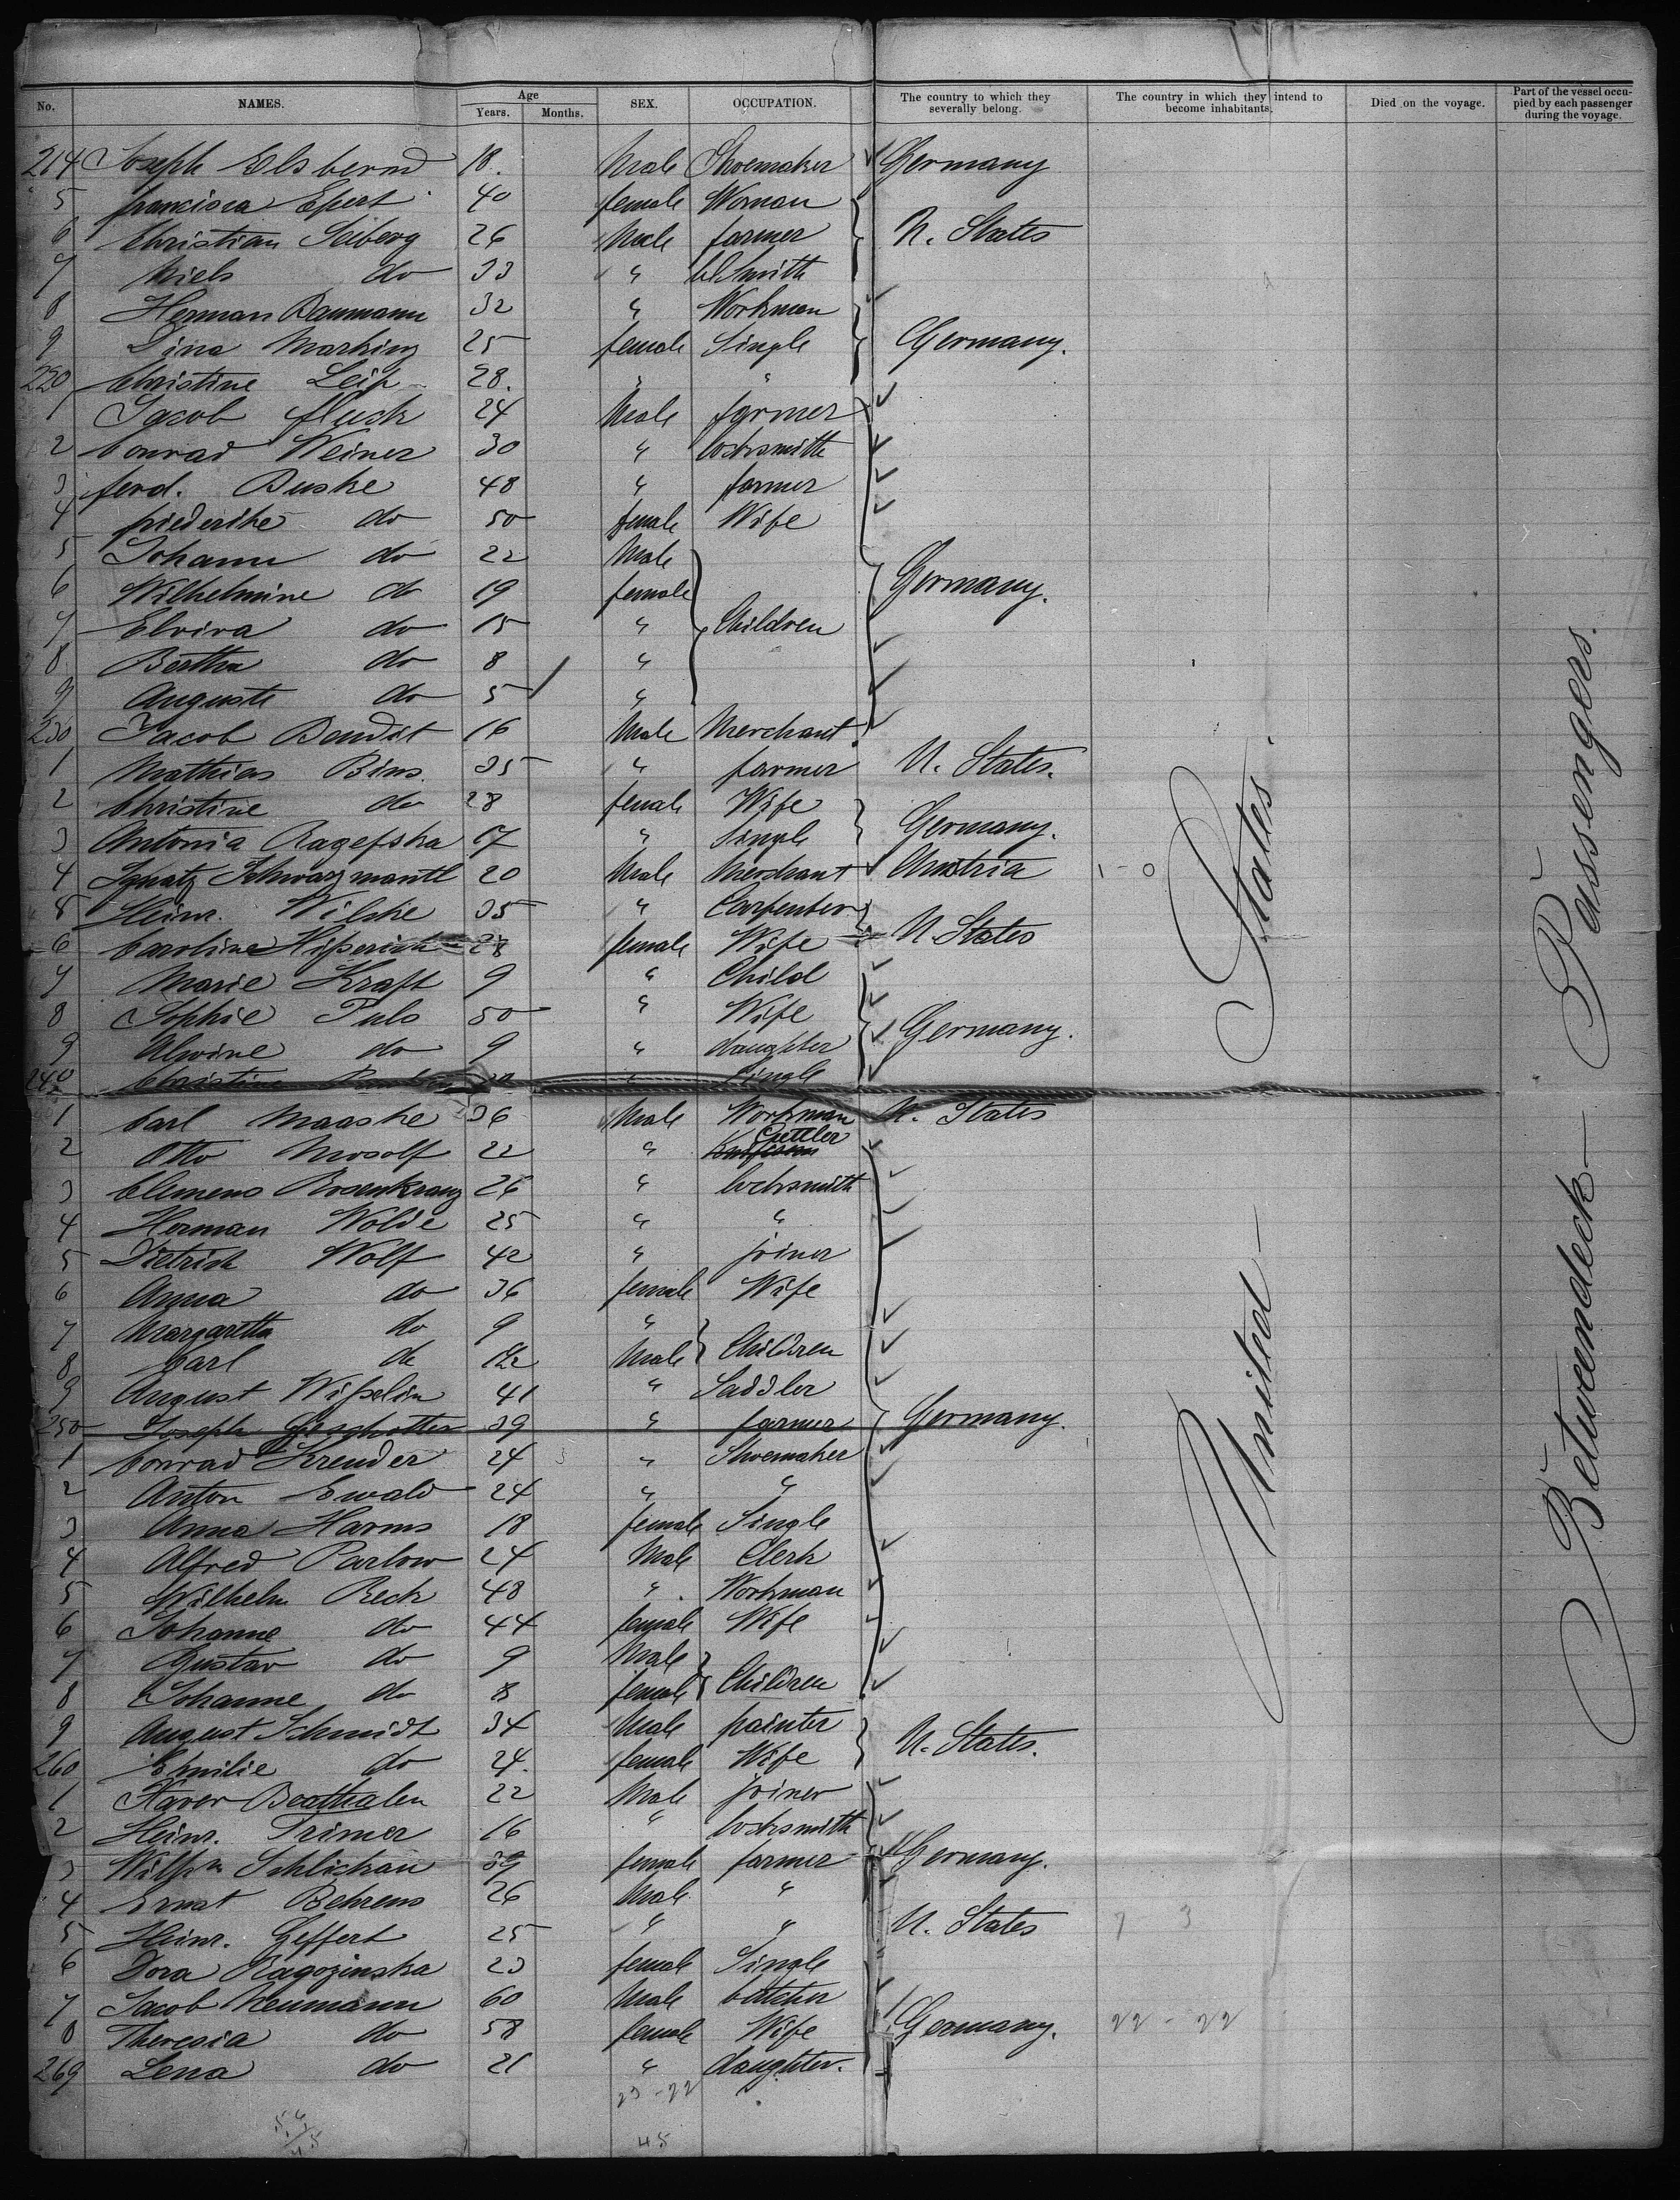 No. NAMES. Age Years. Months. SEX. OCCUPATION. The country to which they severally belong. The country in which they intend to become inhabitants. Died on the voyage. Part of the vessel occupied by each passenger during the voyage.
214 Joseph Elsbernd 18. Male Shoemaker Germany
5 francisca Epert 40 female Woman
6 Christian Seiberg 26 Male farmer U. States
7 Niels do 33 " bl Smith
8 Herman Baumann 32 " Workman
9 Dina Marking 25 female Single Germany.
220 Christine Leip 28. " "
1 Jacob fluck 24 Male farmer
2 Conrad Weiner 30 " locksmith
3 ferd. Buske 48 " farmer
4 friederike do 50 female Wife
5 Johann do 22 Male
6 Wilhelmine do 19 female Germany.
7 Elvira do 15 " Children
8 Bertha do 8 "
9 Auguste do 5 "
230 Jacob Bendit 16 Male Merchant
1 Mathias Bins 35 " farmer U. States.
2 Christine do 28 female Wife
3 Antonia Ragefska 17 " Single Germany.
4 Ignatz Schwarzmantl 20 Male Merchant Austria 1 - 0
5 Heinr. Wilske 35 " Carpenter
6 Caroline 28 female Wife U. States
7 Marie Kraft 9 " Child
8 Sophie Puls 50 " Wife
9 Alwine do 9 " daughter Germany.
240 Christine " Single
1 Carl Maaske 36 Male Workman U. States
2 Otto Mosolf 22 "
3 Clemens Rosenkranz 26 " locksmith
4 Herman Wolde 25 " "
5 Dietrich Wolf 42 " joiner
6 Anna do 36 female Wife
7 Margaretta do 9 "
8 Carl do Male Children
9 August Wißelin 41 " Saddler
250 Joseph 39 " farmer Germany.
1 Conrad Kreuder 24 " Shoemaker
2 Anton Ewald 24 " "
3 Anna Harms 18 female Single
4 Alfred Parlow 24 Male Clerk
5 Wilhelm Beck 48 " Workman
6 Johanne do 44 female Wife
7 Gustav do 9 Male
8 Johanne do 8 female Children
9 August Schmidt 34 Male painter
260 Emilie do 24. female Wife U. States.
1 Xaver Beathalen 22 Male joiner
2 Heinr. Primer 16 " locksmith
3 Wilh'm Schlichau 39 female farmer Germany.
4 Ernst Behrens 26 Male "
5 Heinr. Geffert 25 " " U. States 7 3
6 Dora Ragozinska 23 female Single
7 Jacob Neumann 60 Male butcher
8 Theresia do 58 female Wife Germany. 22 - 22
269 Lena do 21 " daughter.
23 - 22
45
United States
Betweendeck Passengers.